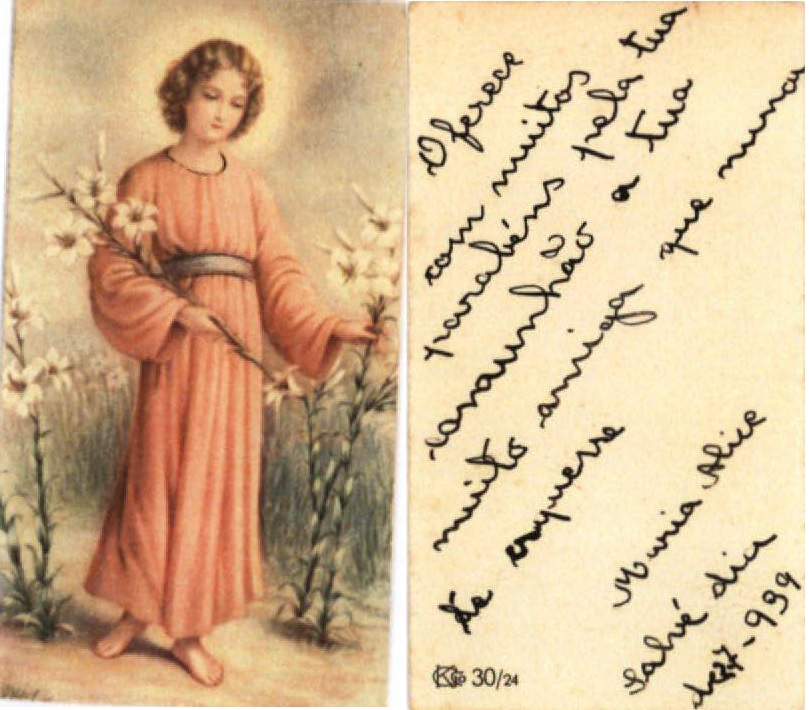 Oferece
com muitos
parabéns pela tua
comunhão a tua
muito amiga que nunca
te esquesse
Maria Alice
Salvé dia
27-939
30/24